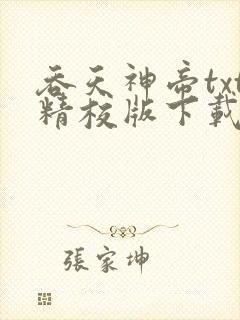 吞天神帝txt
精校版下載
張家坤